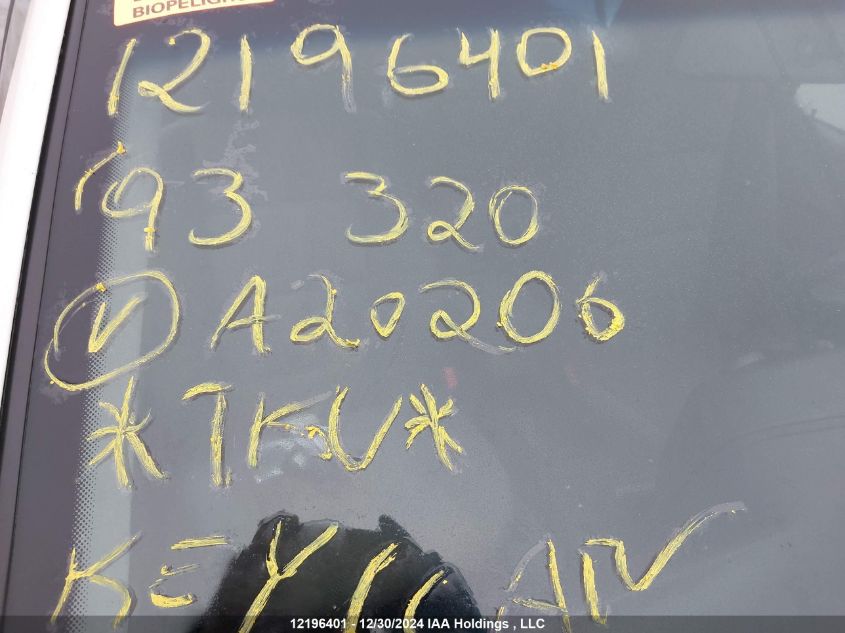 BIOPELIGH
12196401
'93 320
V A20206
*TKU*
KEY
12196401 - 12/30/2024 IAA Holdings , LLC